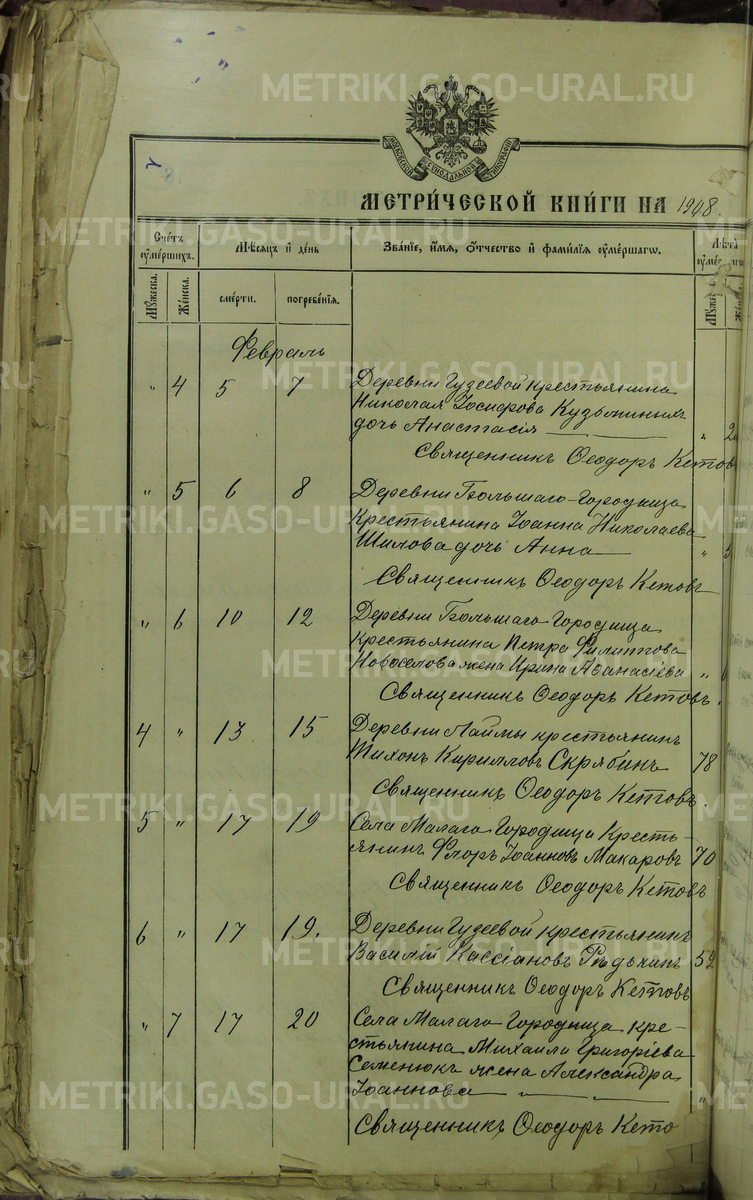 METRIKI.GASO-URAL.RU
МОСКОВСКОЙ СѴНОДАЛЬНОЙ ТИПОГРАФІИ
МЕТРИ́ЧЕСКОЙ КНИ́ГИ НА 1908.
Сче́тъ ᲂумéршихъ. Мѣ́сяцъ и҆ де́нь Зва́нїе, и҆́мя, ѻ҆́тчество и҆ фами́лїя ᲂу҆ме́ршагѡ. Лѣ́та
Мꙋ́жеска. Же́нска. сме́рти. погребе́нїя.
Февраль
" 4 5 7 Деревни Гузеевой крестьянина
Николая Іосифова Кузьминыхъ
дочь Анастасія — — "
Священникъ Ѳеодоръ Кетовъ
" 5 6 8 Деревни Большаго-Городища
Крестьянина Іоанна Николаева
Шилова дочь Анна — "
Священникъ Ѳеодоръ Кетовъ
" 6 10 12 Деревни Большаго Городища
Крестьянина Петра Филиппова
Новоселова жена Ирина Аѳанасіева "
Священникъ Ѳеодоръ Кетовъ.
4 " 13 15 Деревни Лаймы крестьянинъ
Тихонъ Кирилловъ Скрябинъ 78
Священникъ Ѳеодоръ Кетовъ.
5 " 17 19 Села Малаго Городища Кресть-
янинъ Флоръ Іоанновъ Макаровъ 70
Священникъ Ѳеодоръ Кетовъ
6 " 17 19. Деревни Гузеевой крестьянинъ
Василій Кассіановъ 52
Священникъ Ѳеодоръ Кетовъ
" 7 17 20 Села Малаго Городища кре-
стьянина Михаила Григоріева
Семенюкъ жена Александра
Іоаннова — " — "
Священникъ Ѳеодоръ Кето